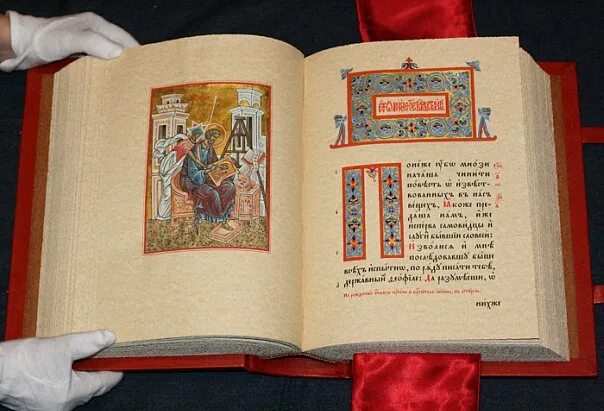 Понеже ᲂу҆́бо мнози
начаша чинити
повѣсть ѡ извѣст
вованныхъ въ насъ
вещехъ, Ꙗкоже пре
даша намъ, иже
исперва самовидцы и
слꙋги бывшїи словесе:
Изволися и мнѣ
послѣдовавшꙋ выше
всѣхъ испытнѡ, по рядꙋ писати тебѣ,
державный Ѳеофіле: Да разꙋмѣеши, ѡ
нихже